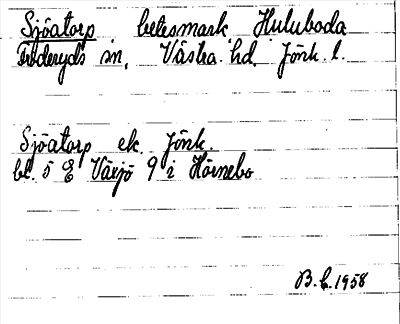 Sjöatorp betesmark Huluboda
Frederyds sn, Västra hd. Jönk. l.
Sjöatorp ek. Jönk.
bl. 5 E Växjö 9 i Hörnebo
B.L. 1958